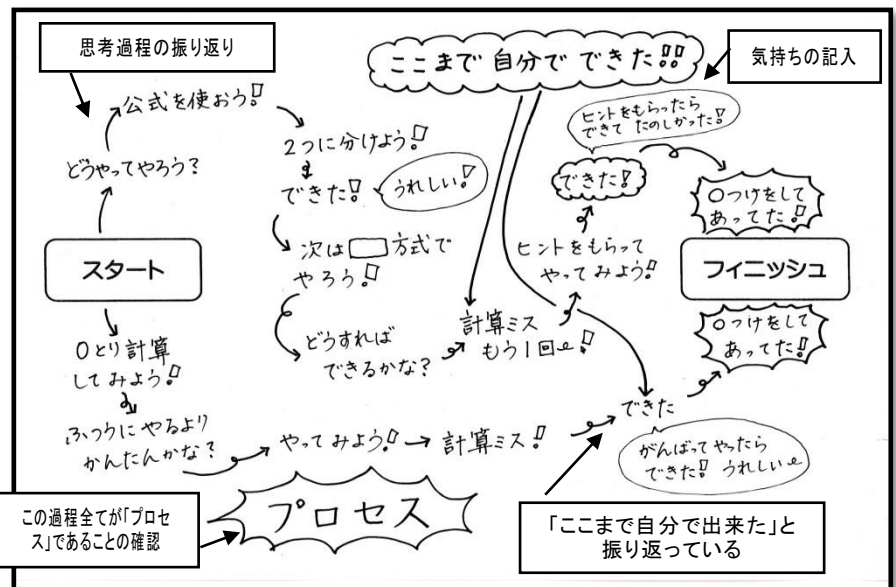 思考過程の振り返り
ここまで自分でできた!!
気持ちの記入
公式を使おう!
どうやってやろう?
2つに分けよう!
できた!
うれしい!
次は□方式で
やろう!
どうすれば
できるかな?
計算ミス
もう1回!
ヒントをもらって
やってみよう!
できた!
ヒントをもらったら
できて たのしかった!
○つけをして
あってた!
スタート
フィニッシュ
0とり計算
してみよう!
ふつうにやるより
かんたんかな?
やってみよう!
計算ミス!
できた
がんばってやったら
できた! うれしい
○つけをして
あってた!
プロセス
この過程全てが「プロセ
ス」であることの確認
「ここまで自分で出来た」と
振り返っている